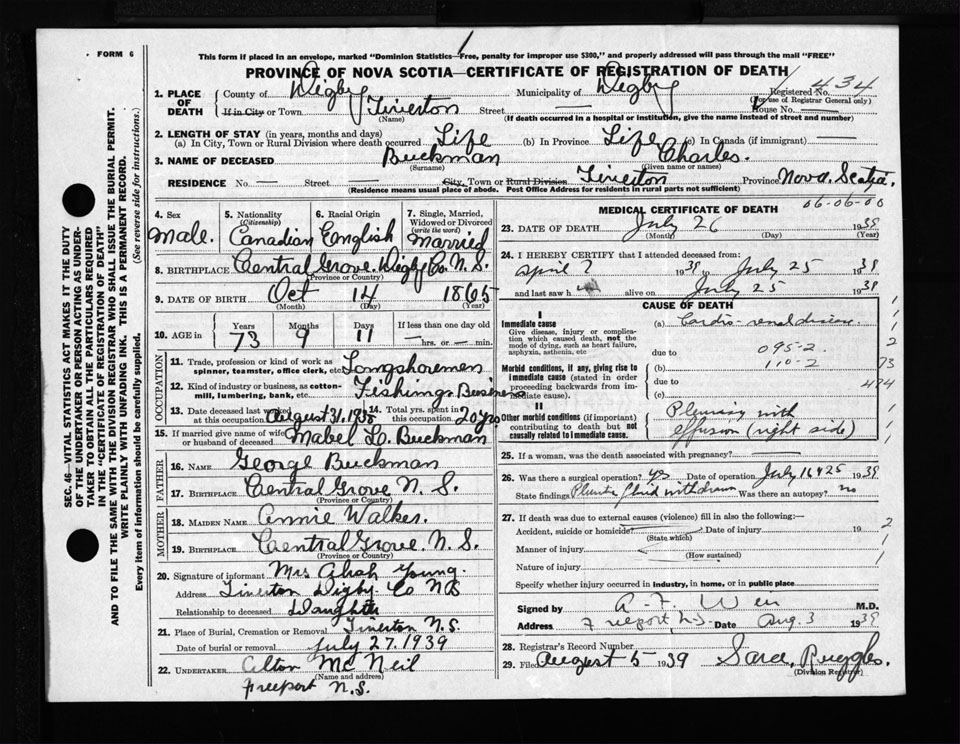 FORM 6
1
This form if placed in an envelope, marked "Dominion Statistics—Free, penalty for improper use $300," and properly addressed will pass through the mail "FREE"
PROVINCE OF NOVA SCOTIA—CERTIFICATE OF REGISTRATION OF DEATH
SEC. 46—VITAL STATISTICS ACT MAKES IT THE DUTY
OF THE UNDERTAKER OR PERSON ACTING AS UNDER-
TAKER TO OBTAIN ALL THE PARTICULARS REQUIRED
IN THE "CERTIFICATE OF REGISTRATION OF DEATH"
AND TO FILE THE SAME WITH THE DIVISION REGISTRAR WHO SHALL ISSUE THE BURIAL PERMIT.
WRITE PLAINLY WITH UNFADING INK. THIS IS A PERMANENT RECORD.
Every item of information should be carefully supplied. (See reverse side for instructions.)
1. PLACE OF DEATH
County of Digby Municipality of Digby Registered No. 434
(For use of Registrar General only)
If in City or Town Tiverton Street — House No. —
(Name) (If death occurred in a hospital or institution, give the name instead of street and number)
2. LENGTH OF STAY (in years, months and days)
(a) In City, Town or Rural Division where death occurred Life (b) In Province Life (c) In Canada (if immigrant) —
3. NAME OF DECEASED Buckman Charles.
(Surname) (Given name or names)
RESIDENCE No. — Street City, Town or Rural Division Tiverton Province Nova Scotia.
(Residence means usual place of abode. Post Office Address for residents in rural parts not sufficient)
06-06-00
4. Sex Male.
5. Nationality (Citizenship) Canadian
6. Racial Origin English
7. Single, Married, Widowed or Divorced (write the word) Married
8. BIRTHPLACE Central Grove. Digby Co. N. S.
(Province or Country)
9. DATE OF BIRTH Oct 14 1865
(Month) (Day) (Year)
10. AGE in Years 73 Months 9 Days 11 If less than one day old
— hrs. or — min.
OCCUPATION
11. Trade, profession or kind of work as spinner, teamster, office clerk, etc. Longshoremen
12. Kind of industry or business, as cotton-mill, lumbering, bank, etc. Fishing Business
13. Date deceased last worked at this occupation August 31, 1938
14. Total yrs. spent in this occupation 20 yrs
15. If married give name of wife or husband of deceased Mabel L. Buckman
FATHER
16. NAME George Buckman
17. BIRTHPLACE Central Grove N. S.
(Province or Country)
MOTHER
18. MAIDEN NAME Annie Walker.
19. BIRTHPLACE Central Grove. N. S.
(Province or Country)
20. Signature of informant Mrs Young.
Address Tiverton Digby Co NS
Relationship to deceased Daughter
21. Place of Burial, Cremation or Removal Tiverton N.S.
Date of burial or removal July 27. 1939
22. UNDERTAKER Alton McNeil
(Name and address)
Freeport N.S.
MEDICAL CERTIFICATE OF DEATH
23. DATE OF DEATH July 26 1939
(Month) (Day) (Year)
24. I HEREBY CERTIFY that I attended deceased from:
April ? 1939 to July 25 1939
and last saw h alive on July 25 1939
CAUSE OF DEATH
I
Immediate cause
Give disease, injury or complication which caused death, not the mode of dying, such as heart failure, asphyxia, asthenia, etc
(a) Cardio-renal disease
due to 095-2
Morbid conditions, if any, giving rise to immediate cause (stated in order proceeding backwards from immediate cause).
(b) 110-2
due to
(c)
II
Other morbid conditions (if important) contributing to death but not causally related to immediate cause.
Pleurisy with
effusion (right side)
1
1
2
1
73
1
25. If a woman, was the death associated with pregnancy? —
26. Was there a surgical operation? yes Date of operation July 16 & 25 1939
State findings fluid withdrawn Was there an autopsy? no
27. If death was due to external causes (violence) fill in also the following:—
Accident, suicide or homicide? Date of injury 19
(State which)
Manner of injury
(How sustained)
Nature of injury
Specify whether injury occurred in industry, in home, or in public place
2
1
1
Signed by A. F. Weir M.D.
Address Freeport N.S. Date Aug. 3 1939
28. Registrar's Record Number
29. Filed August 5 1939 Sara Ruggles.
(Division Registrar)